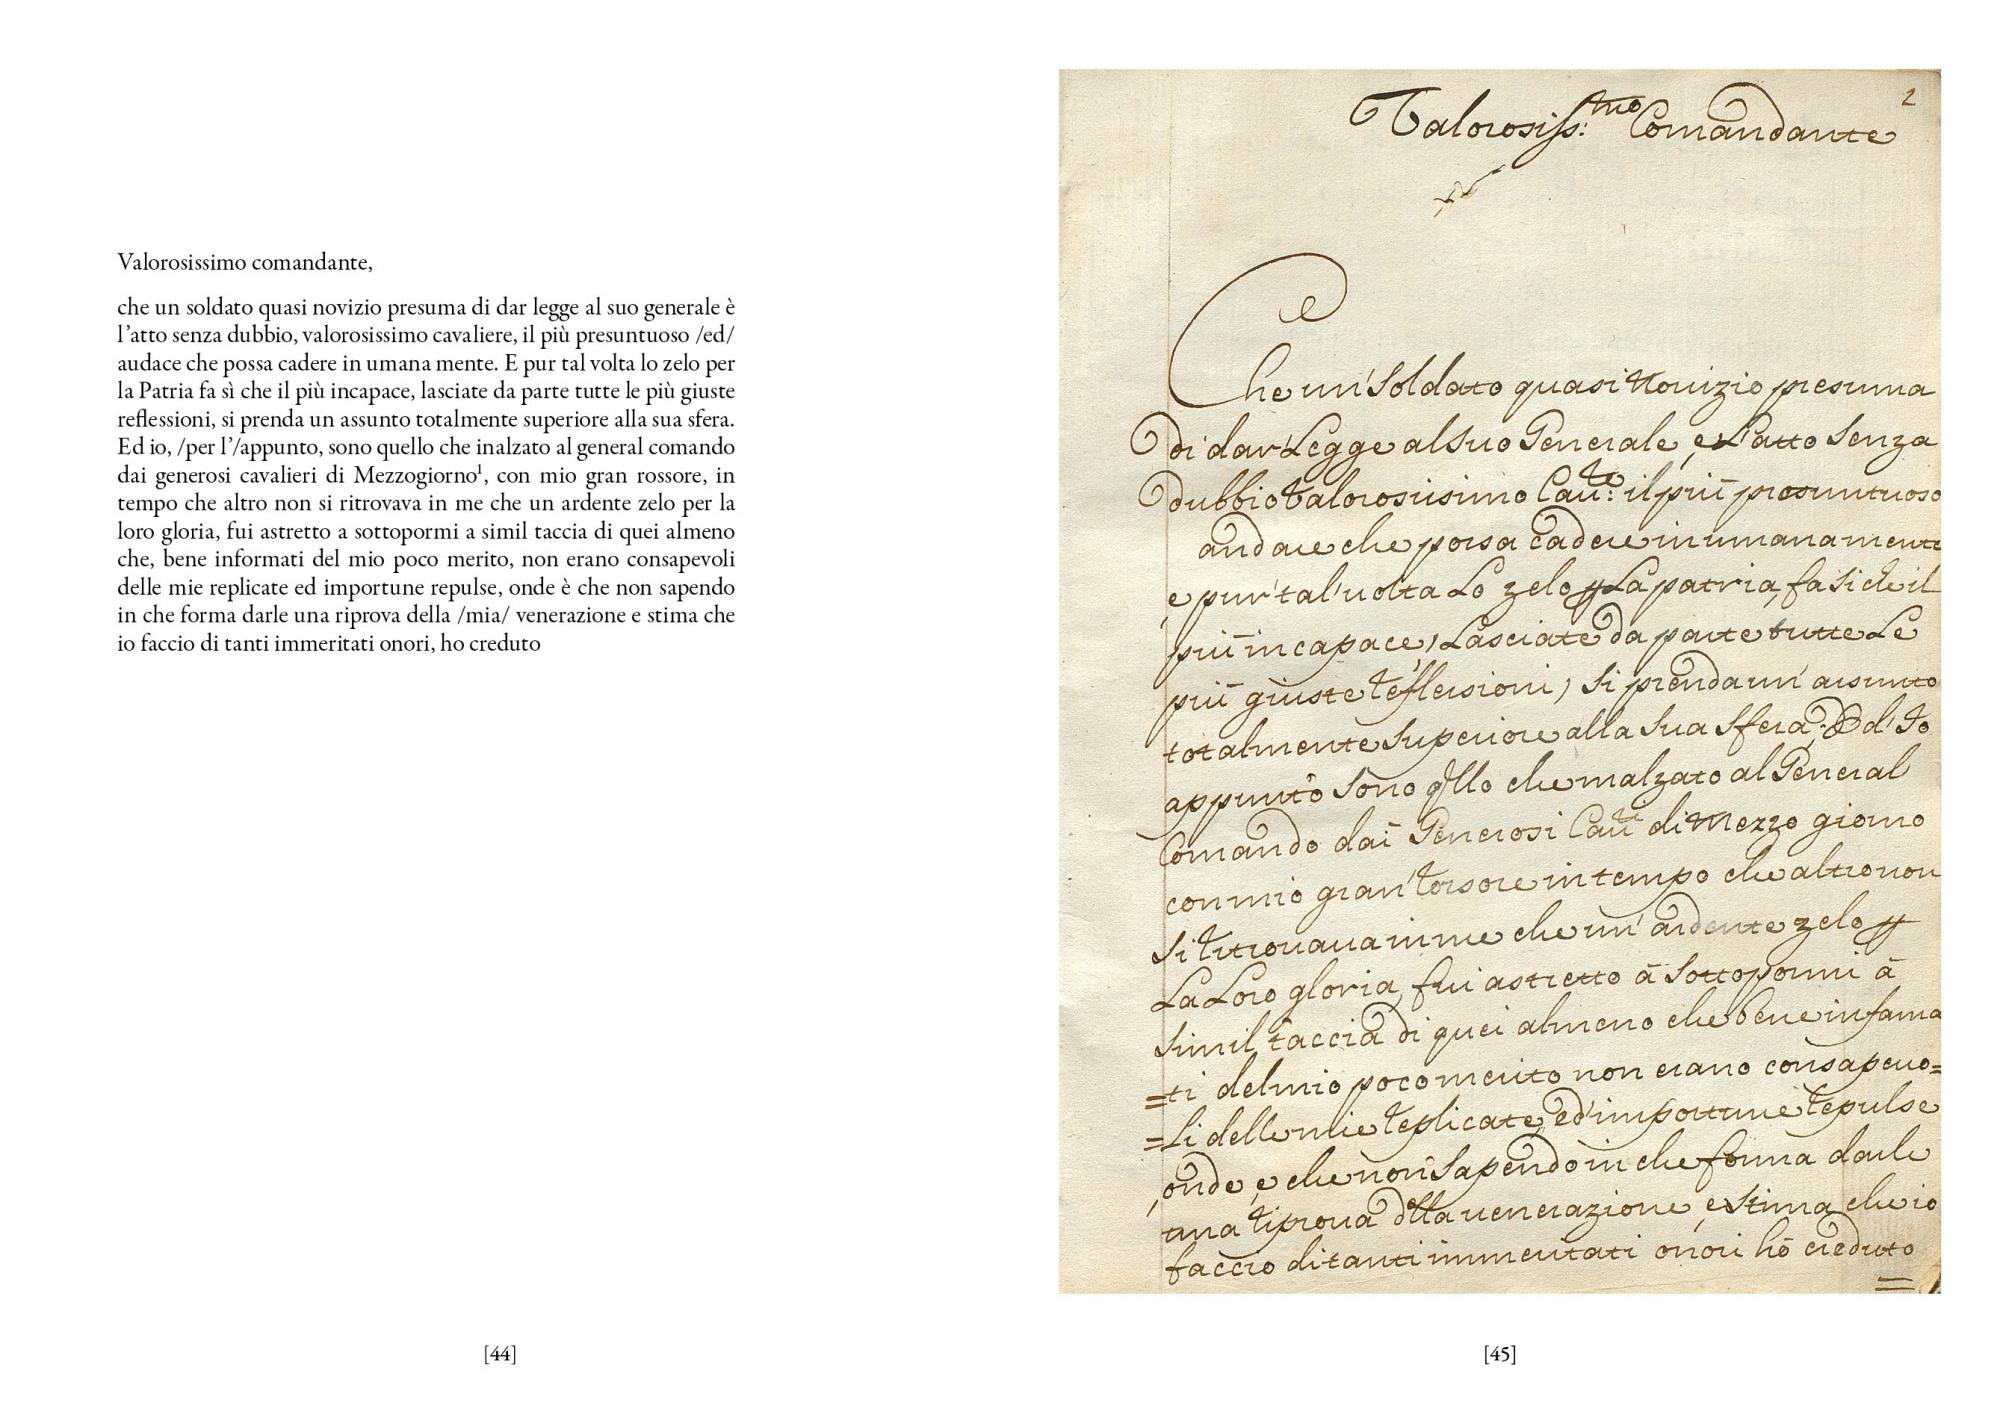 Valorosissimo comandante,
che un soldato quasi novizio presuma di dar legge al suo generale è
l’atto senza dubbio, valorosissimo cavaliere, il più presuntuoso /ed/
audace che possa cadere in umana mente. E pur tal volta lo zelo per
la Patria fa sì che il più incapace, lasciate da parte tutte le più giuste
reflessioni, si prenda un assunto totalmente superiore alla sua sfera.
Ed io, /per l’/appunto, sono quello che inalzato al general comando
dai generosi cavalieri di Mezzogiorno¹, con mio gran rossore, in
tempo che altro non si ritrovava in me che un ardente zelo per la
loro gloria, fui astretto a sottopormi a simil taccia di quei almeno
che, bene informati del mio poco merito, non erano consapevoli
delle mie replicate ed importune repulse, onde è che non sapendo
in che forma darle una riprova della /mia/ venerazione e stima che
io faccio di tanti immeritati onori, ho creduto
[44]
2
Valorosiss:mo Comandante
Che un' Soldato quasi Novizio presuma
di dar' Legge al Suo Generale, e L'atto Senza
dubbio Valorosissimo Cav:re il più presuntuoso
audace che possa cadere in umana mente
e pur' tal' volta Lo zelo p La patria, fa si che il
più incapace, Lasciate da parte tutte Le
più giuste reflessioni, si prenda un' assunto
totalmente Superiore alla Sua Sfera, Ed' Io
appunto Sono qllo che inalzato al General
Comando dai Generosi Cavri di Mezzo giorno
con mio gran' rossore in tempo che altro non
si ritrovava in me che un' ardente zelo p
La Loro gloria, fui astretto à Sottopormi à
Simil taccia di quei almeno che bene informa
=ti del mio poco merito non erano consapevo=
=li delle mie replicate, ed' importune repulse
onde, e che non Sapendo in che forma darle
una riprova dlla venerazione, e Stima che io
faccio di tanti immeritati onori hò creduto
[45]